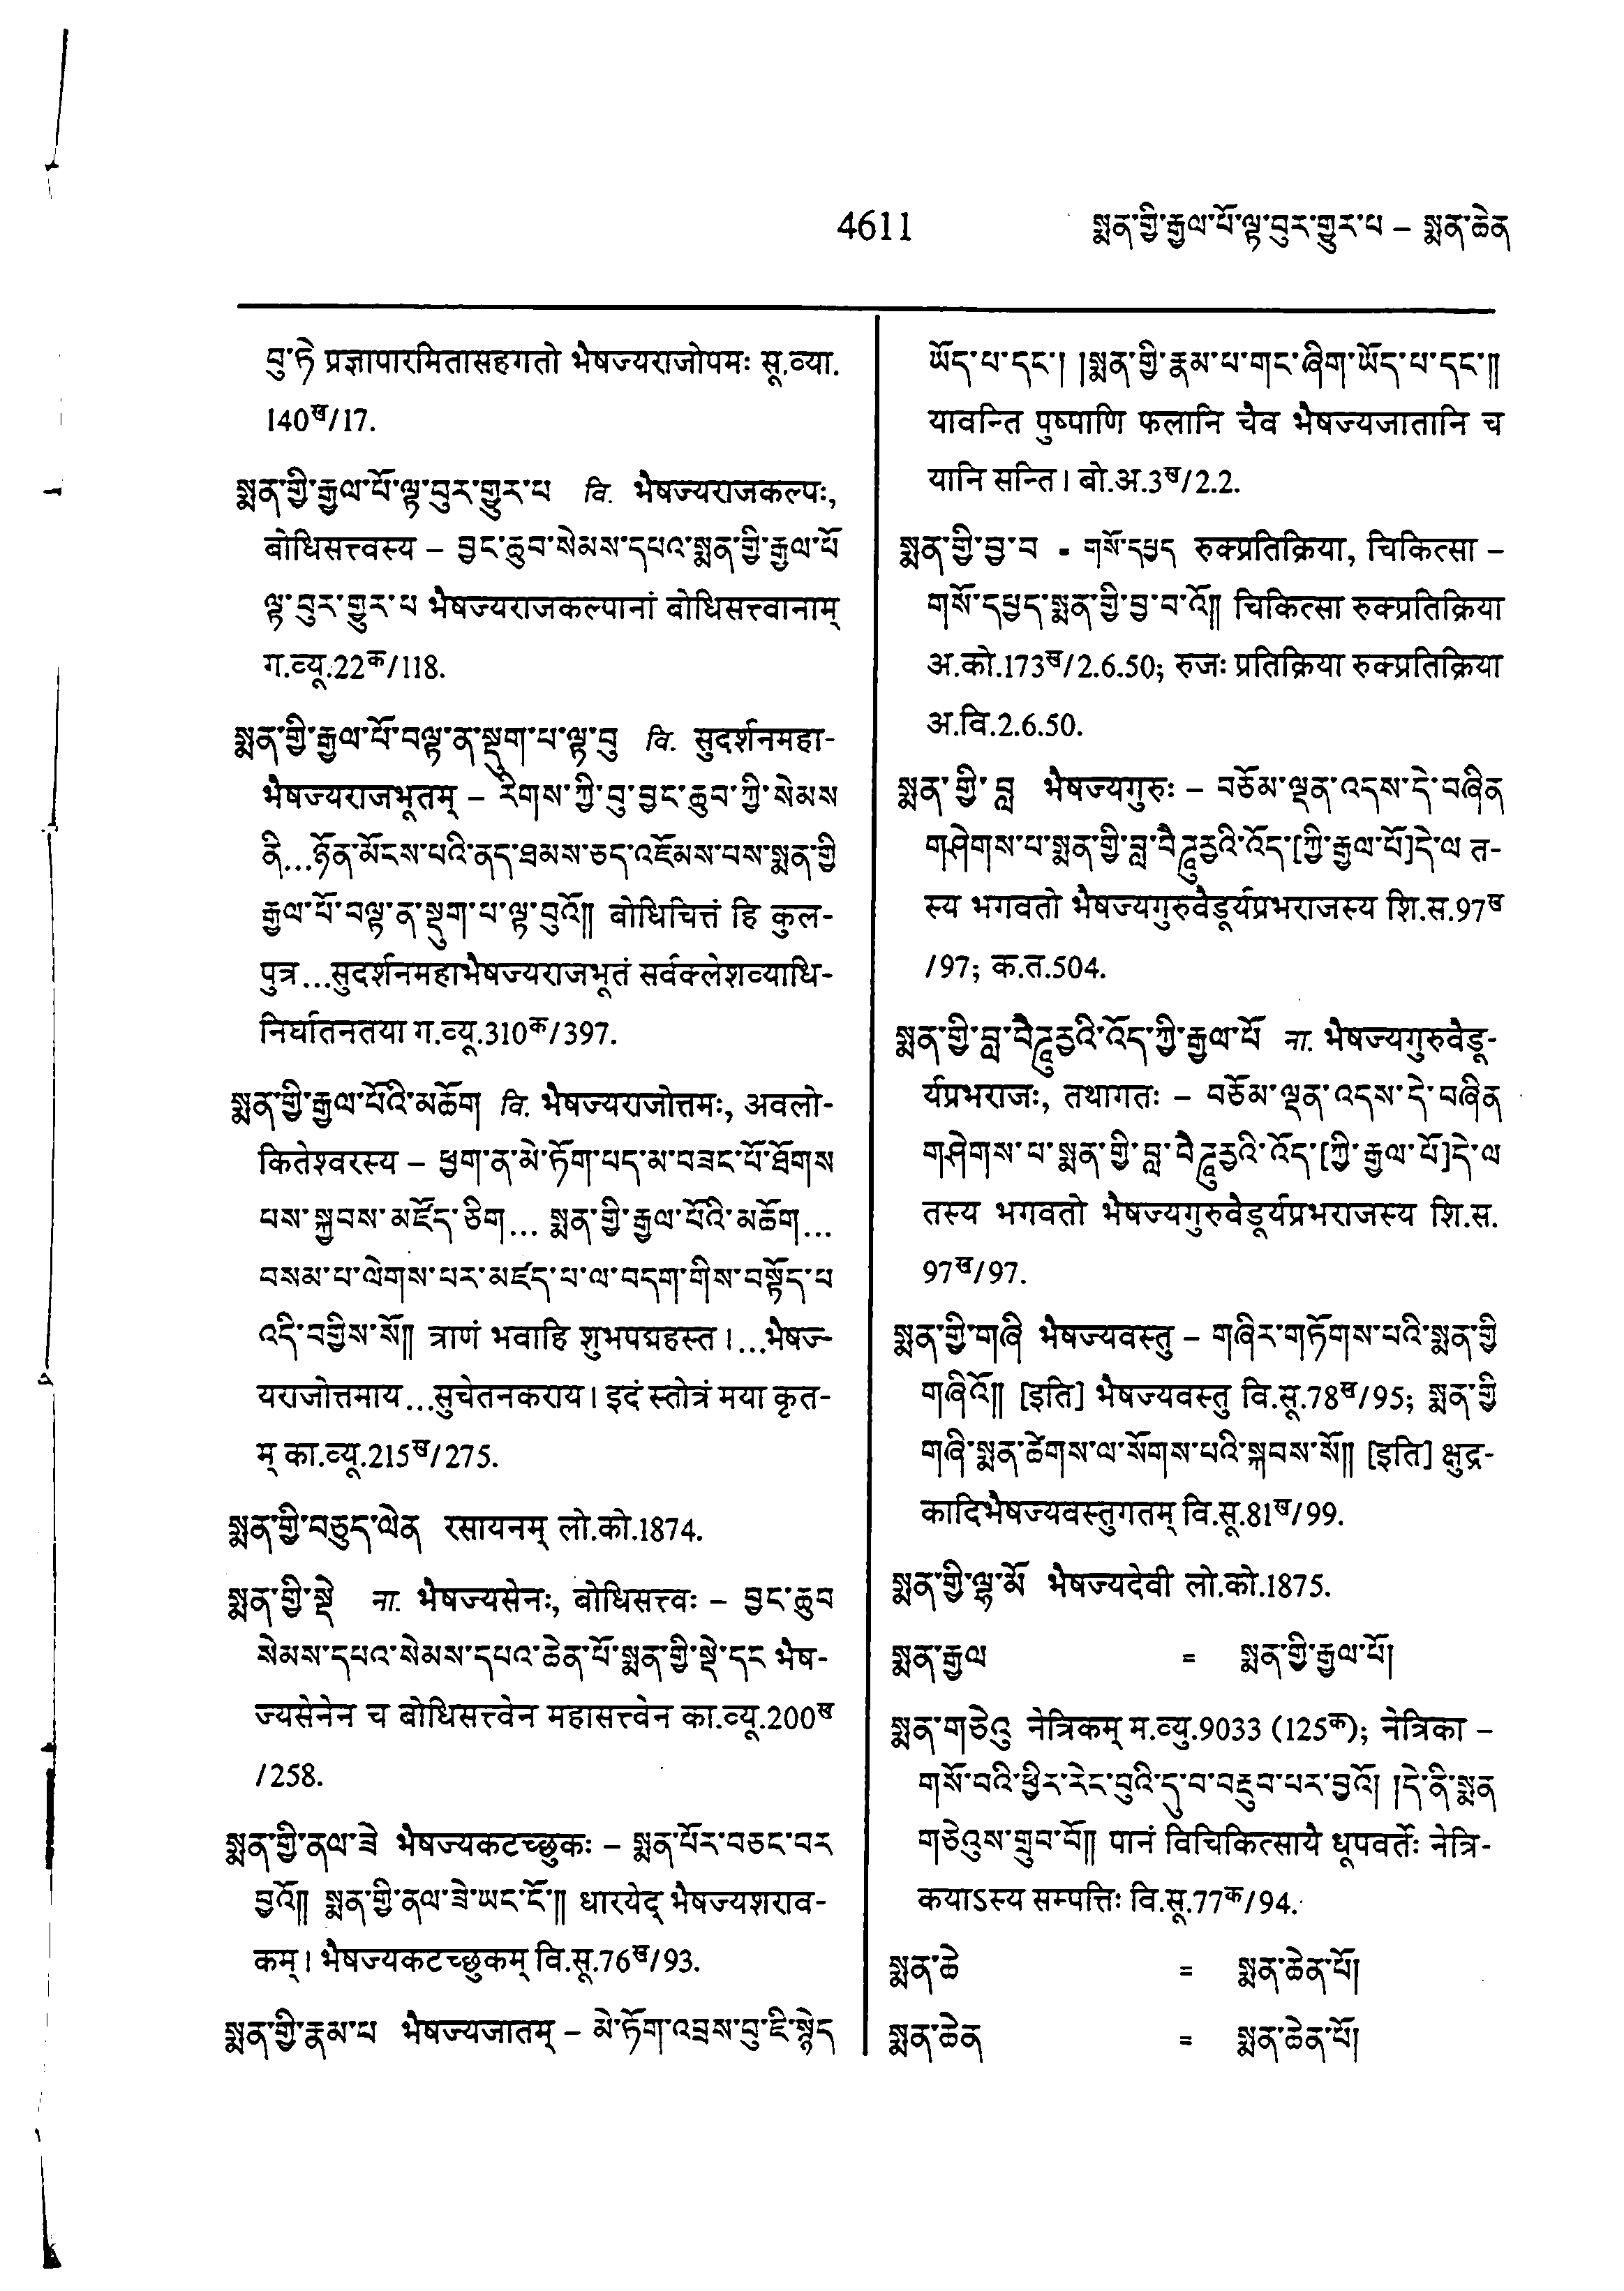 4611
སྨན་གྱི་རྒྱལ་པོ་ལྟ་བུར་གྱུར་པ – སྨན་ཆེན
བུ་ཏེ प्रज्ञापारमितासहगतो भैषज्यराजोपमः सू.व्या.
140ख/17.
སྨན་གྱི་རྒྱལ་པོ་ལྟ་བུར་གྱུར་པ वि. भैषज्यराजकल्पः,
बोधिसत्त्वस्य – བྱང་ཆུབ་སེམས་དཔའ་སྨན་གྱི་རྒྱལ་པོ
ལྟ་བུར་གྱུར་པ भैषज्यराजकल्पानां बोधिसत्त्वानाम्
ग.व्यू.22क/118.
སྨན་གྱི་རྒྱལ་པོ་བལྟ་ན་སྡུག་པ་ལྟ་བུ वि. सुदर्शनमहा-
भैषज्यराजभूतम् – རིགས་ཀྱི་བུ་བྱང་ཆུབ་ཀྱི་སེམས
ནི...ཉོན་མོངས་པའི་ནད་ཐམས་ཅད་འཇོམས་པས་སྨན་གྱི
རྒྱལ་པོ་བལྟ་ན་སྡུག་པ་ལྟ་བུའོ།། बोधिचित्तं हि कुल-
पुत्र...सुदर्शनमहाभैषज्यराजभूतं सर्वक्लेशव्याधि-
निर्घातनतया ग.व्यू.310क/397.
སྨན་གྱི་རྒྱལ་པོའི་མཆོག वि. भैषज्यराजोत्तमः, अवलो-
कितेश्वरस्य – ཕྱག་ན་མེ་ཏོག་པད་མ་བཟང་པོ་ཐོགས
པས་སྐྱབས་མཛོད་ཅིག... སྨན་གྱི་རྒྱལ་པོའི་མཆོག...
བསམ་པ་ལེགས་པར་མཛད་པ་ལ་བདག་གིས་བསྟོད་པ
འདི་བགྱིས་སོ།། त्राणं भवाहि शुभपद्महस्त।...भैषज-
यराजोत्तमाय...सुचेतनकराय। इदं स्तोत्रं मया कृत-
म् का.व्यू.215ख/275.
སྨན་གྱི་བཅུད་ལེན रसायनम् लो.को.1874.
སྨན་གྱི་སྡེ ना. भैषज्यसेनः, बोधिसत्त्वः – བྱང་ཆུབ
སེམས་དཔའ་སེམས་དཔའ་ཆེན་པོ་སྨན་གྱི་སྡེ་དང भैष-
ज्यसेनेन च बोधिसत्त्वेन महासत्त्वेन का.व्यू.200ख
/258.
སྨན་གྱི་ནལ་ཟེ भैषज्यकटच्छुकः – སྨན་པོར་བཅང་བར
བྱའོ།། སྨན་གྱི་ནལ་ཟེ་ཡང་ངོ་།། धारयेद् भैषज्यशराव-
कम्। भैषज्यकटच्छुकम् वि.सू.76ख/93.
སྨན་གྱི་རྣམ་པ भैषज्यजातम् – མེ་ཏོག་འབྲས་བུ་ཇི་སྙེད
ཡོད་པ་དང་། །སྨན་གྱི་རྣམ་པ་གང་ཞིག་ཡོད་པ་དང་།།
यावन्ति पुष्पाणि फलानि चैव भैषज्यजातानि च
यानि सन्ति। बो.अ.3ख/2.2.
སྨན་གྱི་བྱ་བ = གསོ་དཔྱད रुक्प्रतिक्रिया, चिकित्सा –
གསོ་དཔྱད་སྨན་གྱི་བྱ་བ་འོ།། चिकित्सा रुक्प्रतिक्रिया
अ.को.173ख/2.6.50; रुजः प्रतिक्रिया रुक्प्रतिक्रिया
अ.वि.2.6.50.
སྨན་གྱི་བླ भैषज्यगुरुः – བཅོམ་ལྡན་འདས་དེ་བཞིན
གཤེགས་པ་སྨན་གྱི་བླ་བཻཌཱུརྱའི་འོད་[ཀྱི་རྒྱལ་པོ]དེ་ལ त-
स्य भगवतो भैषज्यगुरुवैडूर्यप्रभराजस्य शि.स.97ख
/97; क.त.504.
སྨན་གྱི་བླ་བཻཌཱུརྱའི་འོད་ཀྱི་རྒྱལ་པོ ना. भैषज्यगुरुवैडू-
र्यप्रभराजः, तथागतः – བཅོམ་ལྡན་འདས་དེ་བཞིན
གཤེགས་པ་སྨན་གྱི་བླ་བཻཌཱུརྱའི་འོད་[ཀྱི་རྒྱལ་པོ]དེ་ལ
तस्य भगवतो भैषज्यगुरुवैडूर्यप्रभराजस्य शि.स.
97ख/97.
སྨན་གྱི་གཞི भैषज्यवस्तु – གཞིར་གཏོགས་པའི་སྨན་གྱི
གཞིའོ།། [इति] भैषज्यवस्तु वि.सू.78ख/95; སྨན་གྱི
གཞི་སྨན་ཚེགས་ལ་སོགས་པའི་སྐབས་སོ།། [इति] क्षुद्र-
कादिभैषज्यवस्तुगतम् वि.सू.81ख/99.
སྨན་གྱི་ལྷ་མོ भैषज्यदेवी लो.को.1875.
སྨན་རྒྱལ = སྨན་གྱི་རྒྱལ་པོ།
སྨན་གཅེའུ नेत्रिकम् म.व्यु.9033 (125क); नेत्रिका –
གསོ་བའི་ཕྱིར་རེང་བུའི་དུ་བ་བརྔུབ་པར་བྱའོ། །དེ་ནི་སྨན
གཅེའུས་གྲུབ་བོ།། पानं विचिकित्सायै धूपवर्तेः नेत्रि-
कयाऽस्य सम्पत्तिः वि.सू.77क/94.
སྨན་ཆེ = སྨན་ཆེན་པོ།
སྨན་ཆེན = སྨན་ཆེན་པོ།